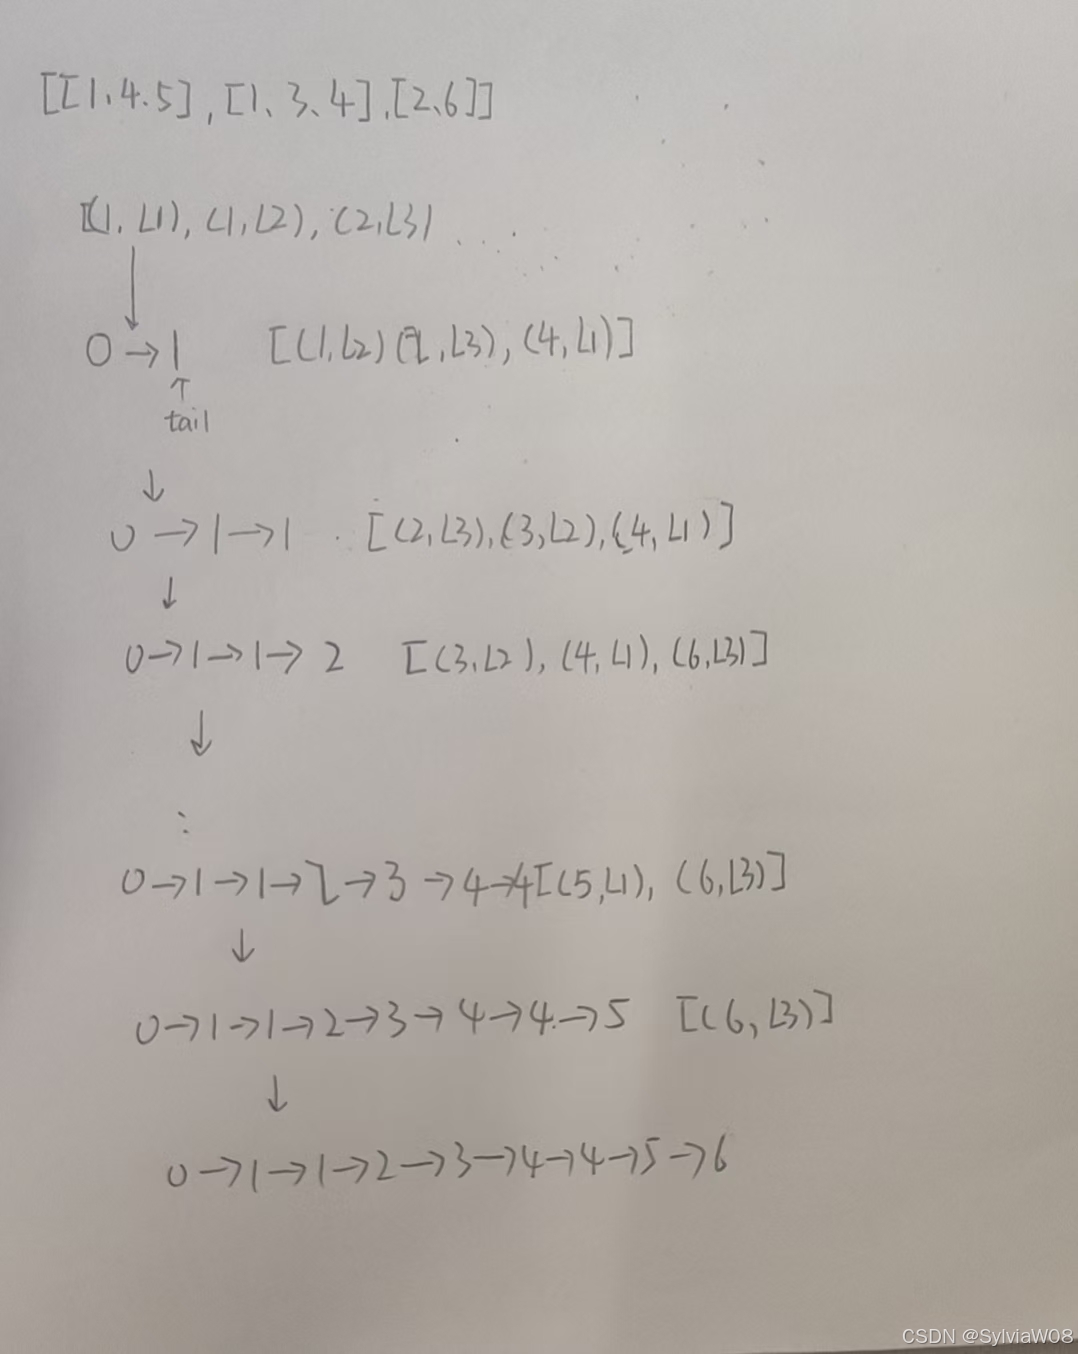 [[1、4、5],[1、3、4],[2、6]]
[(1,L1),(1,L2),(2,L3)
0→1 [(1,L2)(2,L3),(4,L1)]
↑
tail
↓
0→1→1 [(2,L3),(3,L2),(4,L1)]
↓
0→1→1→2 [(3,L2),(4,L1),(6,L3)]
↓
:
0→1→1→2→3→4→4[(5,L1),(6,L3)]
↓
0→1→1→2→3→4→4→5 [(6,L3)]
↓
0→1→1→2→3→4→4→5→6
CSDN @SylviaW08